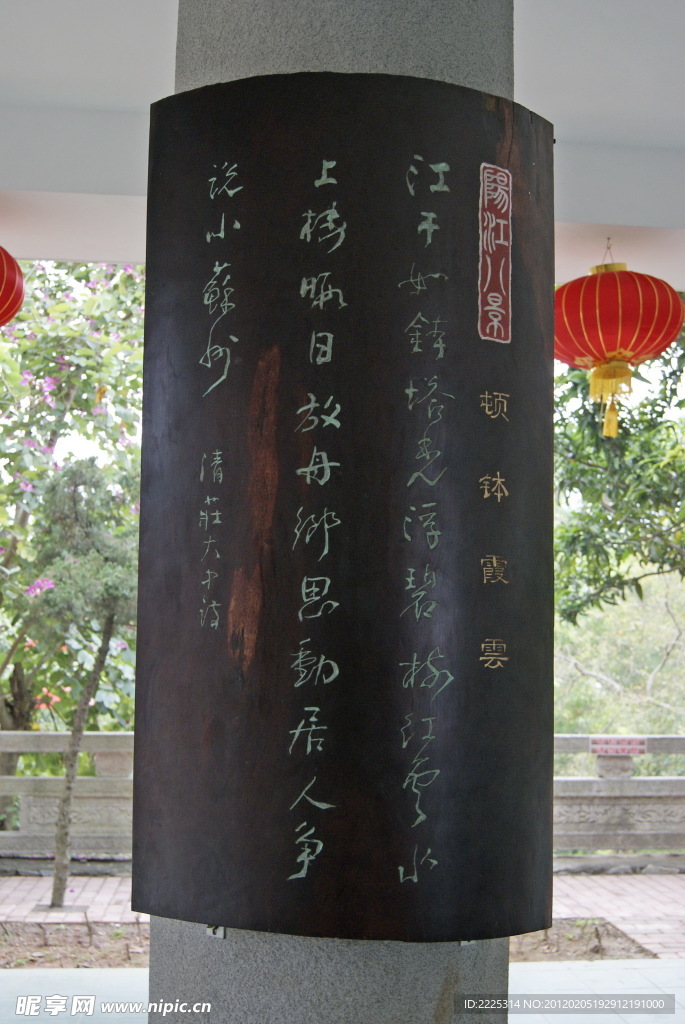 陽江八景
顿钵霞雲
江干如鉢塔悬浮碧樹红雲水
上樓晚日放舟鄉思動居人争
說小蘇州
清莊大中詩
昵享网 www.nipic.cn
ID:2225314 NO:20120205192912191000